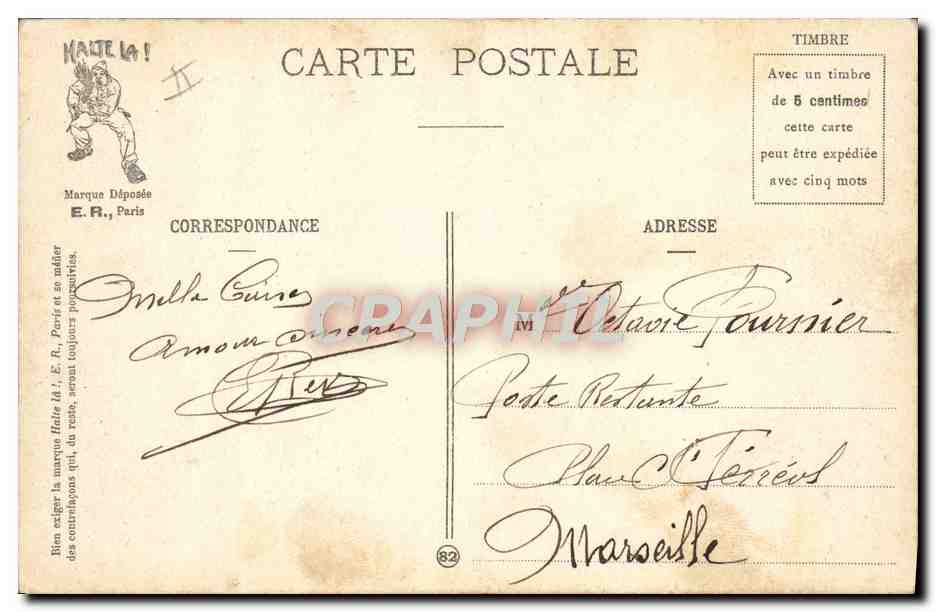 HALTE LA !
Marque Déposée
E. R., Paris
CARTE POSTALE
TIMBRE
Avec un timbre
de 5 centimes
cette carte
peut être expédiée
avec cinq mots
CORRESPONDANCE
Mille
Amour
ADRESSE
Mlle Octavie Fournier
Poste Restante
Marseille
82
Bien exiger la marque Halte là !, E. R., Paris et se méfier
des contrefaçons qui, du reste, seront toujours poursuivies.
CRAPHIL